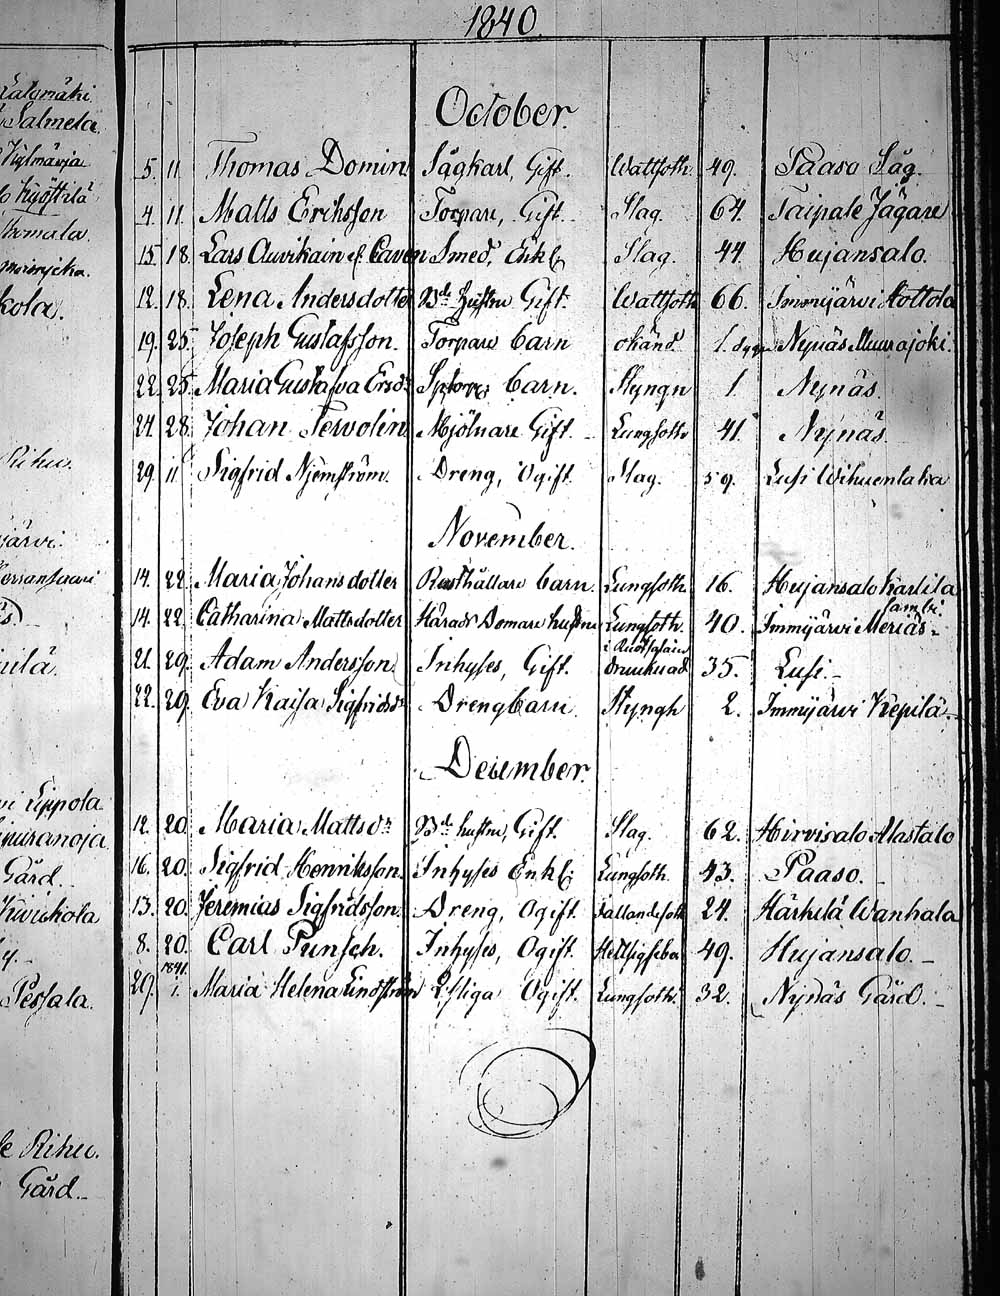 1840.
Salmela
Kylmäoja
kola.
October.
5. 11. Thomas Domin Sågkarl, Gift. Wattsoth. 49. Paaso Såg.
4. 11. Matts Ericksson Torpare, Gift. Slag. 64. Taipale Jägare
15. 18. Lars Auvikain ell. Caven Smed, Enkl. Slag. 44. Hujansalo.
12. 18. Lena Andersdotter Bde hustru Gift. Wattsoth 66. Immijärvi Aottola
19. 25. Joseph Gustafsson. Torpare barn okänd 1. dygn Nynäs Muurajoki.
22. 25. Maria Gustafva Ersdr barn. Styngn 1. Nynäs.
24. 28. Johan Tervolin Mjölnare Gift. Lungsoth 41. Nynäs.
29. 11. Sigfrid Njemström. Dreng, Ogift. Slag. 59. Lusi Wihuenlaka
Rihu.
November.
järvi.
14. 22. Maria Johansdotter Rusthållare barn. Lungsoth. 16. Hujansalo Karlila
14. 22. Catharina Mattsdotter Härads Domare hustru Lungsoth. 40. Immijärvi Meriäs
21. 29. Adam Andersson Inhyses, Gift. drunknad 35. Lusi.
22. 29. Eva Kaisa Sigfridsdr Drengbarn. Styngh 2. Immijärvi Kepilä
December.
Eppola
12. 20. Maria Mattsdr Bde hustru, Gift. Slag. 62. Hirvisalo Alastalo
16. 20. Sigfrid Henriksson. Inhyses Enkl. Lungsoth. 43. Paaso.
Gård.
13. 20. Jeremias Sigfridsson. Dreng, Ogift. Fallandesoth 24. Härkilä Wanhala
8. 20. Carl Punsch. Inhyses, Ogift. 49. Hujansalo.
29. 1841 1. Maria Helena Lindström Ogift. Lungsoth. 32. Nynäs Gård.
Pessala.
Rihu.
Gård.